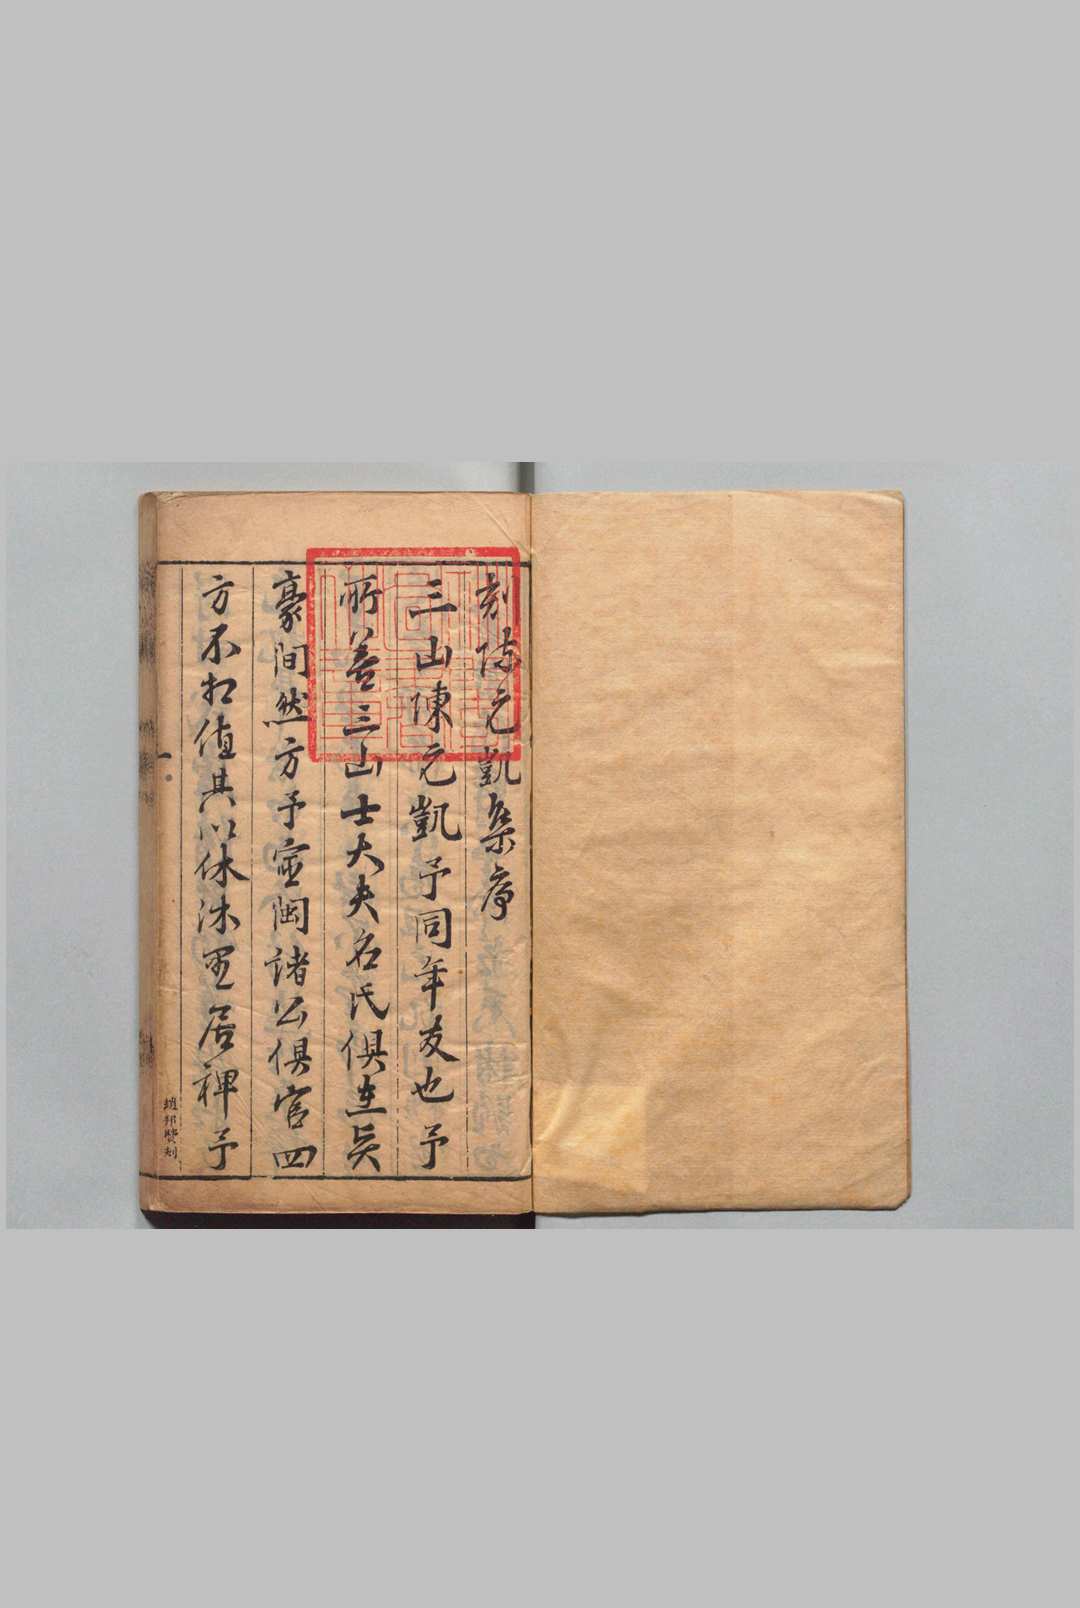 刻陳元凱集序
三山陳元凱予同年友也予
所善三山士大夫名氏俱在矣
豪間然方予宦閩諸公俱官四
方不相值其以休沐里居裨予
趙邦賢刻